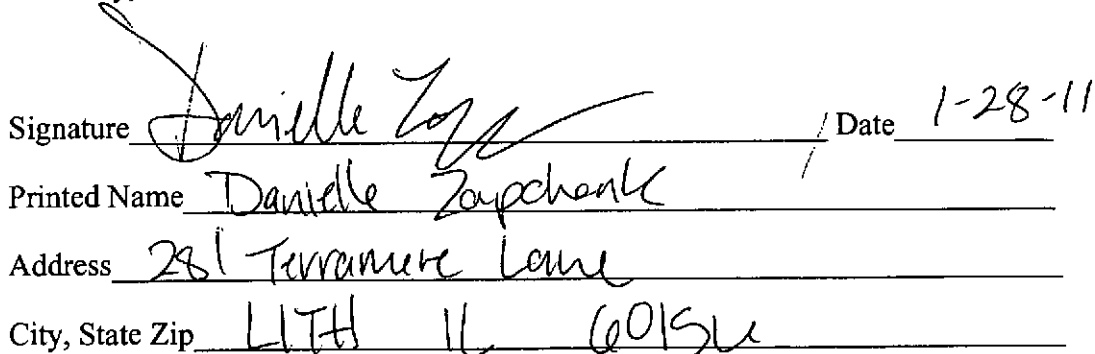 Signature Danielle Zap Date 1-28-11
Printed Name Danielle Zapchenk
Address 281 Terramere Lane
City, State Zip LITH IL 60156